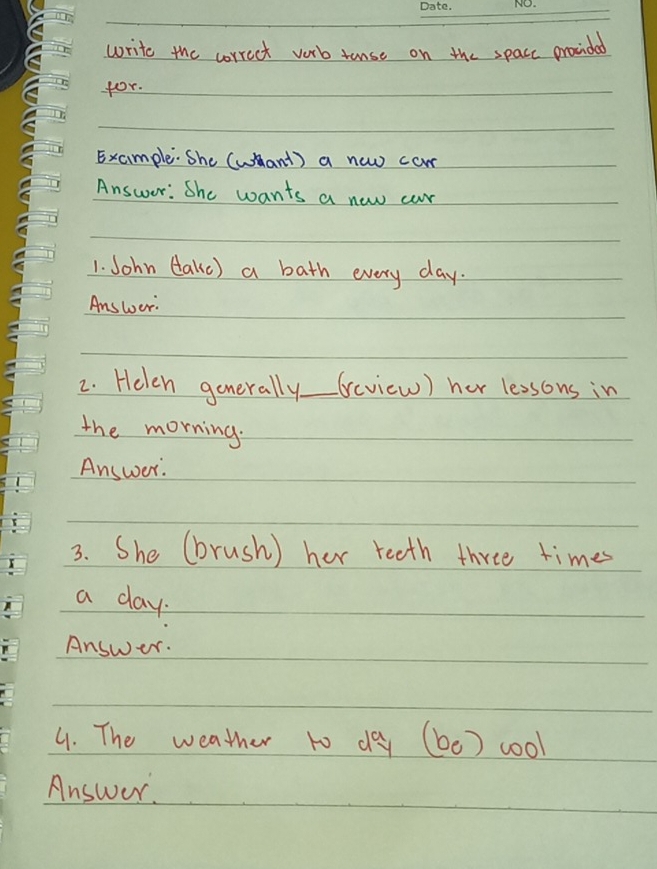 Date. NO.
Write the correct verb tense on the space provided
for.
Example: She (want) a new car
Answer: She wants a new car
1. John (take) a bath every day.
Answer:
2. Helen generally___(review) her lessons in
the morning.
Answer:
3. She (brush) her teeth three times
a day.
Answer.
4. The weather to day (be) cool
Answer.